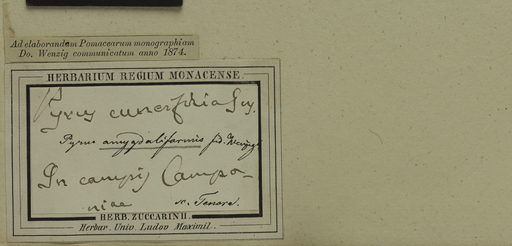 Ad elaborandam Pomacearum monographiam
Do. Wenzig communicatum anno 1874.
HERBARIUM REGIUM MONACENSE.
Pyrus cuneifolia
Pyrus amygdaliformis fid. Wenzig
In campis Campa-
niae
m. Tenore.
HERB. ZUCCARINII.
Herbar. Univ. Ludov. Maximil.